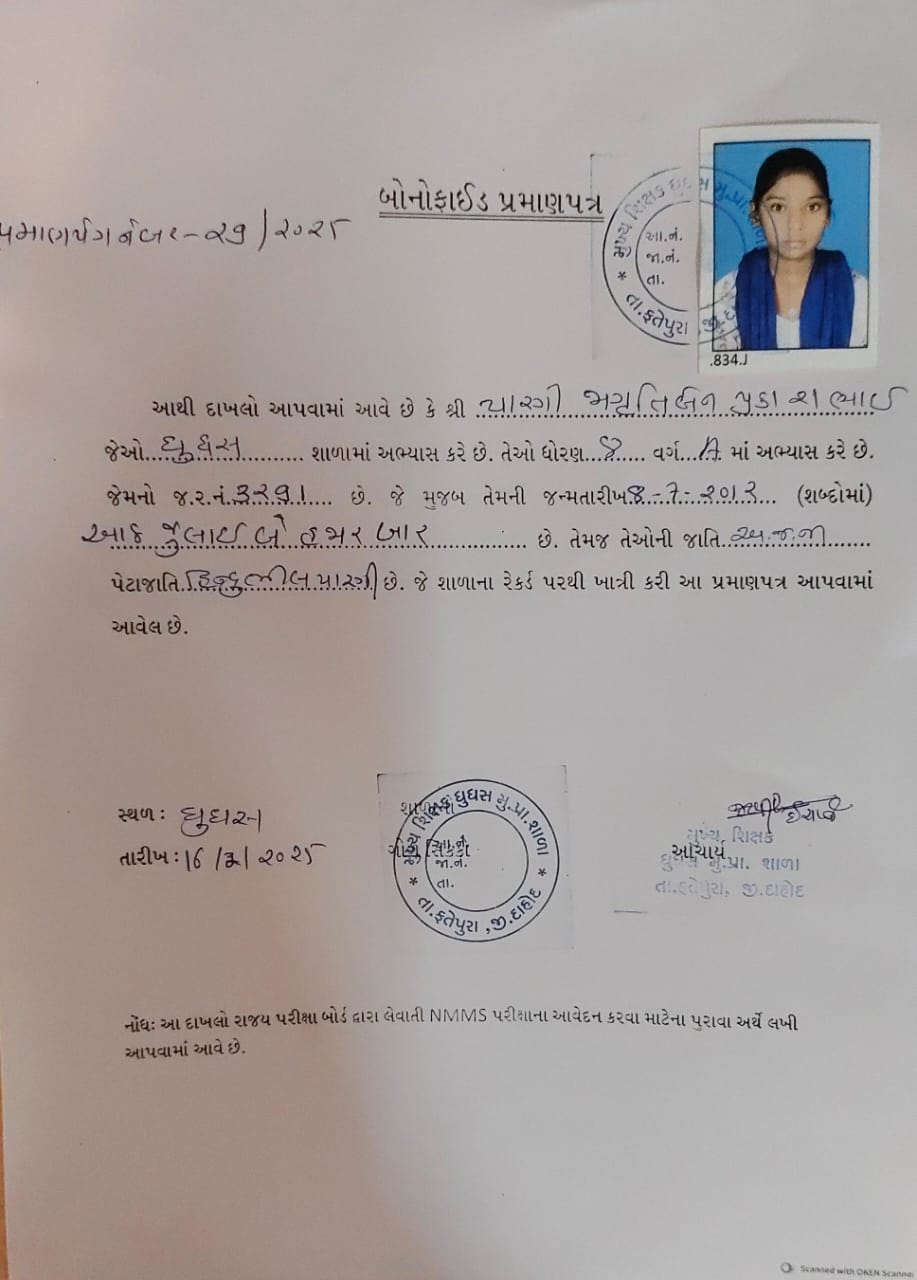 બોનોફાઈડ પ્રમાણપત્ર
મુખ્ય શિક્ષક ઘુઘસ મુ.પ્રા.
આ.નં.
જા.નં.
તા.
* તા.ફતેપુરા ,જી.દા
.834.J
આથી દાખલો આપવામાં આવે છે કે શ્રી પારગી જાગૃતિબેન પ્રકાશભાઈ
જેઓ ઘુઘસ શાળામાં અભ્યાસ કરે છે. તેઓ ધોરણ 8 વર્ગ A માં અભ્યાસ કરે છે.
જેમનો જ.ર.નં. 3291 છે. જે મુજબ તેમની જન્મતારીખ 8-7-2012 (શબ્દોમાં)
આઠ જુલાઈ બે હજાર બાર છે. તેમજ તેઓની જાતિ અ.જ.જા
પેટાજાતિ હિન્દુ ભીલ પારગી છે. જે શાળાના રેકર્ડ પરથી ખાત્રી કરી આ પ્રમાણપત્ર આપવામાં
આવેલ છે.
સ્થળ: ઘુઘસ
તારીખ: 16 / /2025
મુખ્ય શિક્ષક ઘુઘસ મુ.પ્રા.શાળા
આ.નં.
જા.નં.
તા.
* તા.ફતેપુરા ,જી.દાહોદ *
મુખ્ય શિક્ષક
આચાર્ય
ઘુઘસ મુ.પ્રા. શાળા
તા.ફતેપુરા, જી.દાહોદ
નોંધ: આ દાખલો રાજય પરીક્ષા બોર્ડ દ્વારા લેવાતી NMMS પરીક્ષાના આવેદન કરવા માટેના પુરાવા અર્થે લખી
આપવામાં આવે છે.
Scanned with OKEN Scanner